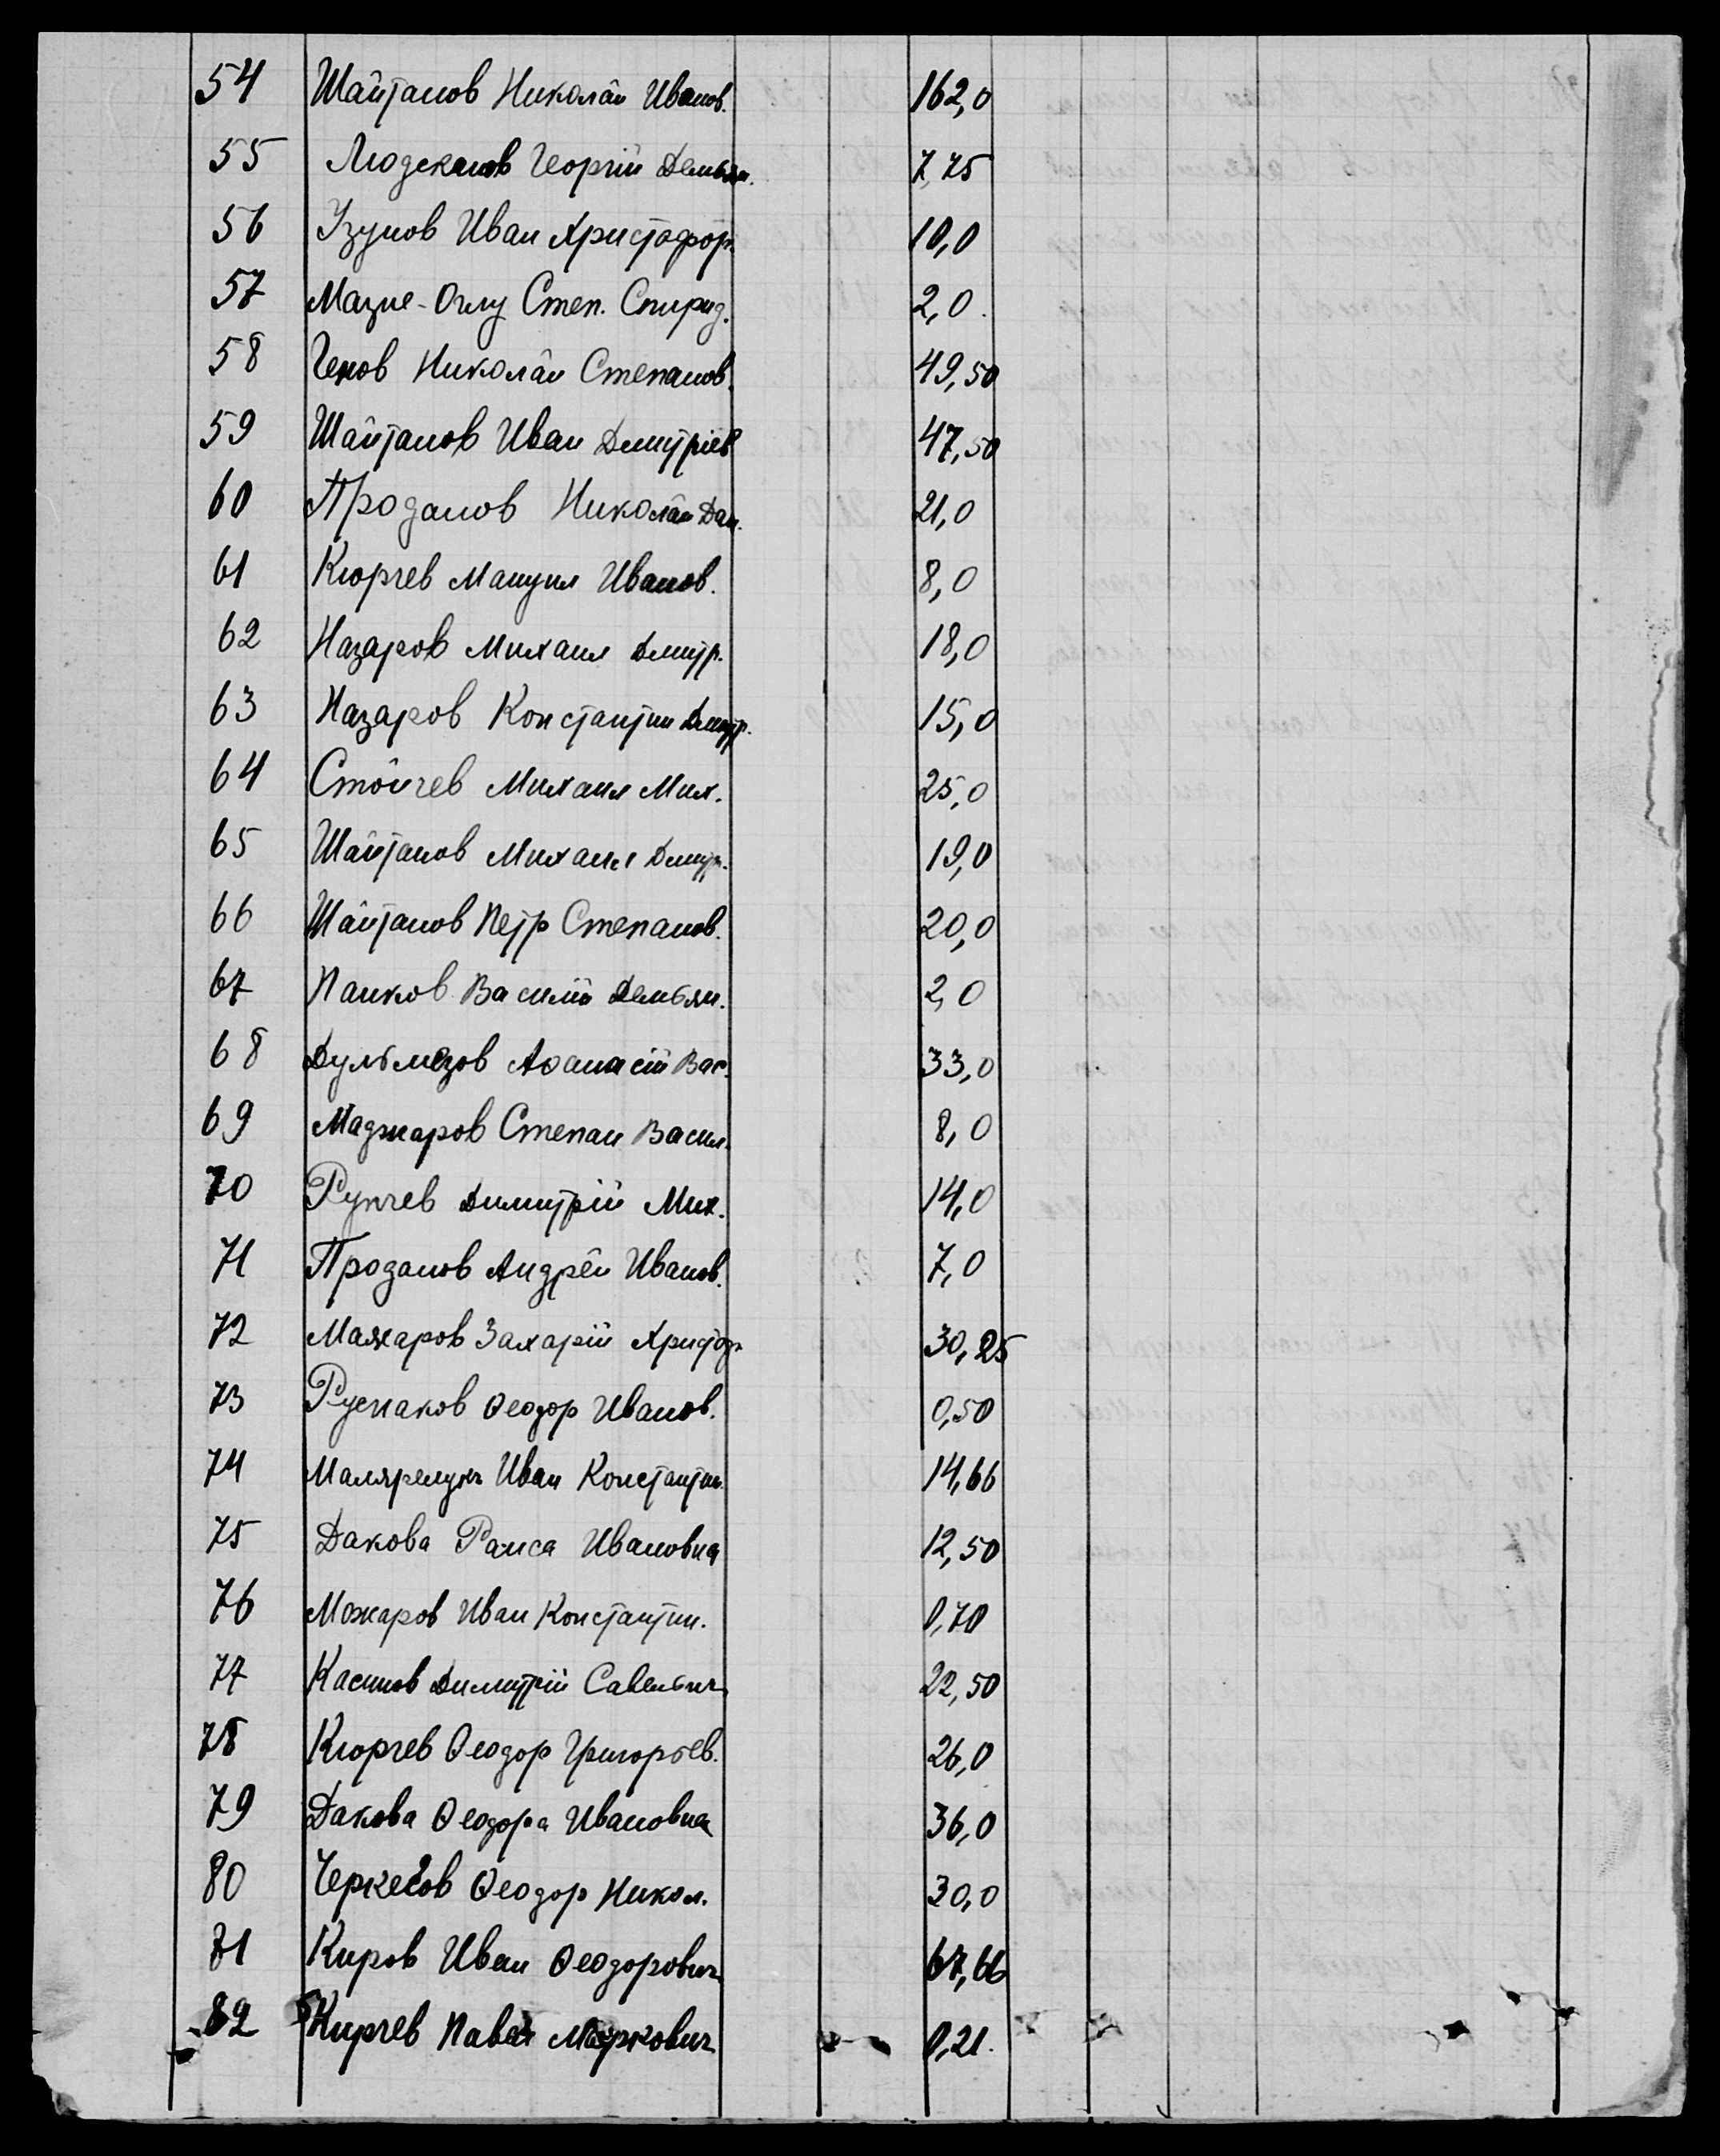 54 Шайтанов Николай Иванов. 162,0
55 Людсканов Георгій Демьян. 7,75
56 Узунов Иван Христофор. 10,0
57 Мазне-Оглу Степ. Спирид. 2,0.
58 Генов Николай Степанов. 49,50
59 Шайтанов Иван Дмитріев 47,50
60 Проданов Николай Дан. 21,0
61 Кюрчев Мануил Иванов. 8,0
62 Назаров Михаил Дмитр. 18,0
63 Назаров Константин Дмитр. 15,0
64 Стойчев Михаил Мих. 25,0
65 Шайтанов Михаил Дмитр. 19,0
66 Шайтанов Петр Степанов. 20,0
67 Панков Василій Демьян. 2,0
68 Дульмезов Афанасій Вас. 33,0
69 Маджаров Степан Васил. 8,0
70 Рупчев Димитрій Мих. 14,0
71 Проданов Андрей Иванов. 7,0
72 Мажаров Захарій Христоф. 30,25
73 Руснаков Ѳеодор Иванов. 0,50
74 Иван Константин. 14,66
75 Дакова Раиса Ивановна 12,50
76 Можаров Иван Константин. 0,70
77 Касимов Димитрій Савельич 22,50
78 Кюрчев Ѳеодор Григорьев. 26,0
79 Дакова Ѳеодора Ивановна 36,0
80 Черкесов Ѳеодор Никол. 30,0
81 Киров Иван Ѳеодорович 67,66
82 Кирчев Павел Маркович 0,21.